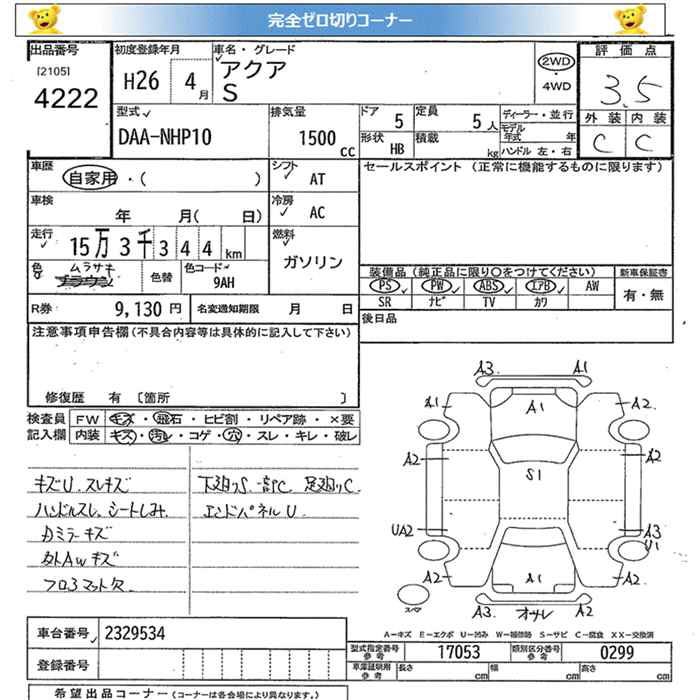 完全ゼロ切りコーナー
出品番号 初度登録年月 車名・グレード 評価点
[2105] H26 4月 アクア 2WD・4WD 3.5
4222 S 外装 内装
型式 排気量 ドア 定員 ディーラー・並行 C C
DAA-NHP10 1500cc 5 5人 モデル年式 年
形状 HB 積載 kg ハンドル 左・右
車歴 自家用・( ) シフト AT セールスポイント (正常に機能するものに限ります)
車検 年 月( 日) 冷房 AC
走行 15万3千344km 燃料 ガソリン
色 ムラサキ 色替 色コード 9AH 装備品(純正品に限り○をつけてください) 新車保証書
PS PW ABS エアB AW 有・無
SR ナビ TV カワ
R券 9,130円 名変通知期限 月 日 後日品
注意事項申告欄(不具合内容等は具体的に記入して下さい)
修復歴 有 [箇所 ]
検査員 FW キズ・飛石・ヒビ割・リペア跡・×要
記入欄 内装 キズ・汚レ・コゲ・穴・スレ・キレ・破レ
キズU.スレキズ 下廻りS.一部C.足廻りC.
ハンドルスレ.シートしみ. エンドパネルU
カミラーキズ
外AWキズ
フロアマット欠
A3. A1
A1 A1 A2.
A2 A2
S1
UA2 A3
U1
A2 A1 A2
スペア A3. オサレ A2
A-キズ E-エクボ U-凹み W-補修跡 S-サビ C-腐食 XX-交換済
車台番号 2329534
型式指定番号参考 17053 類別区分番号参考 0299
登録番号 車庫証明用参考 長さ cm 幅 cm 高さ cm
希望出品コーナー (コーナーは各会場により異なります。)